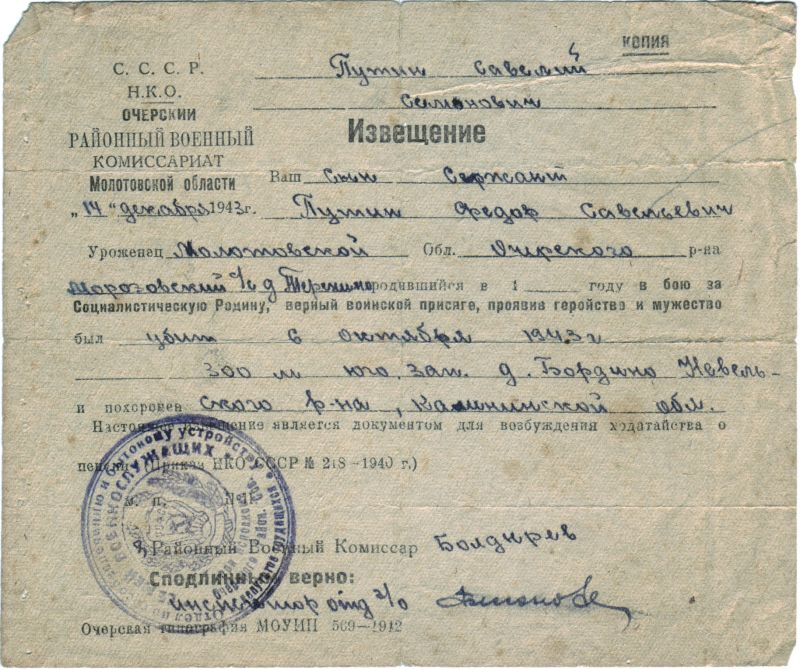 копия
С. С. С. Р.
Н.К.О.
ОЧЕРСКИЙ
РАЙОННЫЙ ВОЕННЫЙ
КОМИССАРИАТ
Молотовской области
„14“ декабря 1943г.
Путин Савелий
Семонович
Извещение
Ваш сын Сержант
Путин Федор Савельевич
Уроженец Молотовской Обл. Очерского р-на
Морозовский с/с д родившийся в 1 году в бою за
Социалистическую Родину, верный воинской присяге, проявив геройство и мужество
был убит 6 октября 1943г
300 м юго. зап. д. Бордино Невель-
и похоронен ского р-на, Калининской обл.
Настоящее извещение является документом для возбуждения ходатайства о
пенсии (Приказ НКО СССР № 218-1940 г.)
м. п.
Районный Военный Комиссар Болдырев
Сподлинным верно:
инспектор отд г/о
Очерская типография МОУИП 569-1942